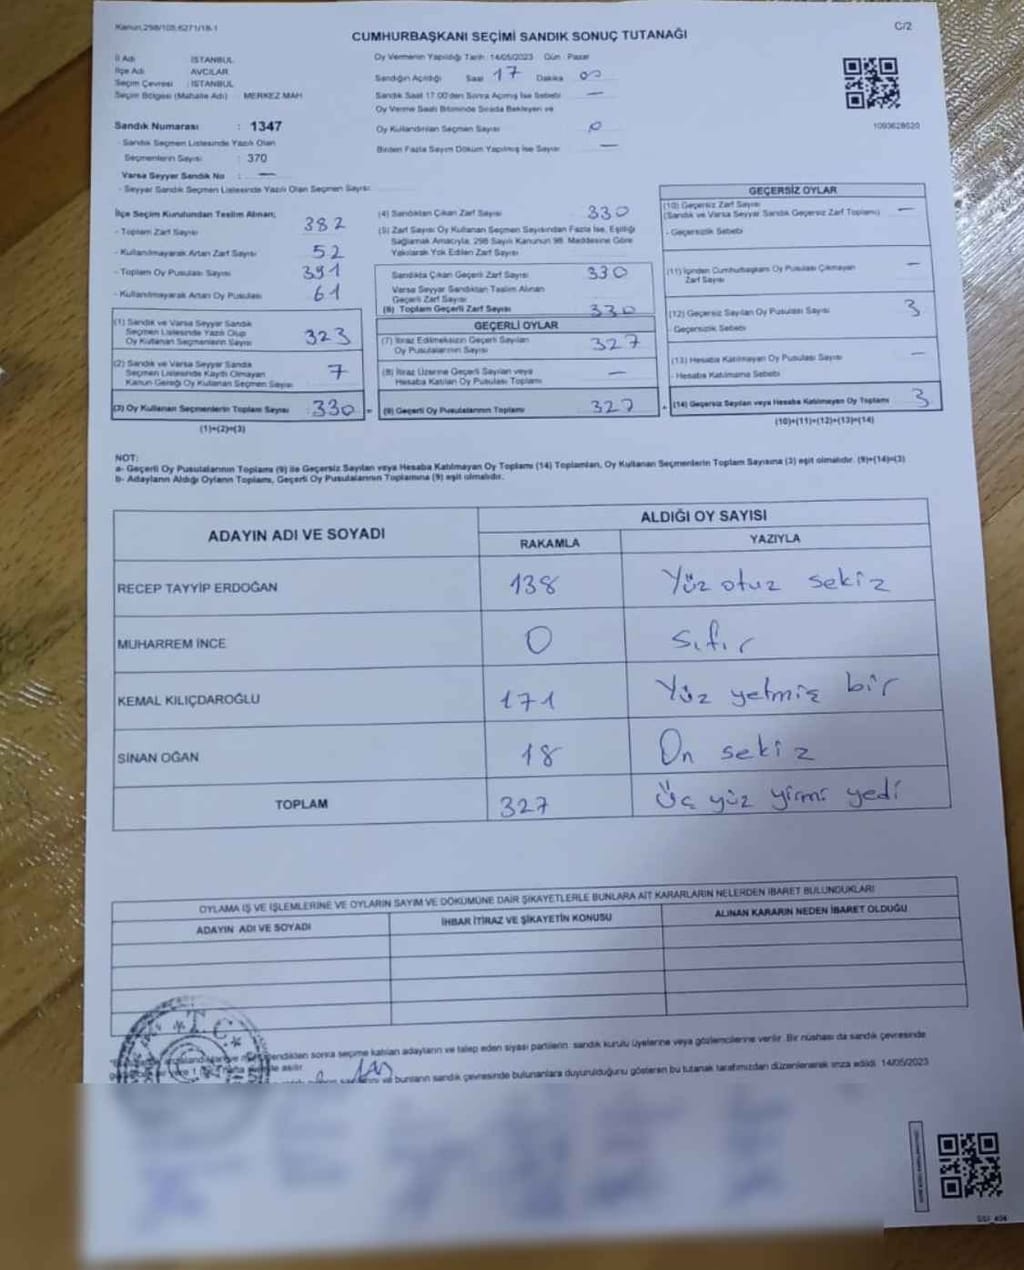 Kanun:298/105,6271/18-1
C/2
CUMHURBAŞKANI SEÇİMİ SANDIK SONUÇ TUTANAĞI
İl Adı İSTANBUL
İlçe Adı AVCILAR
Seçim Çevresi : İSTANBUL
Seçim Bölgesi (Mahalle Adı) : MERKEZ MAH
Sandık Numarası : 1347
- Sandık Seçmen Listesinde Yazılı Olan
Seçmenlerin Sayısı : 370
Varsa Seyyar Sandık No : —
- Seyyar Sandık Seçmen Listesinde Yazılı Olan Seçmen Sayısı:
Oy Vermenin Yapıldığı Tarih : 14/05/2023 Gün : Pazar
Sandığın Açıldığı Saat 17 Dakika 00
Sandık Saat 17:00'den Sonra Açılmış İse Sebebi —
Oy Verme Saati Bitiminde Sırada Bekleyen ve
Oy Kullandırılan Seçmen Sayısı 0
Birden Fazla Sayım Döküm Yapılmış İse Sayısı —
1093628520
İlçe Seçim Kurulundan Teslim Alınan;
- Toplam Zarf Sayısı 382
- Kullanılmayarak Artan Zarf Sayısı 52
- Toplam Oy Pusulası Sayısı 391
- Kullanılmayarak Artan Oy Pusulası 61
(1) Sandık ve Varsa Seyyar Sandık
Seçmen Listesinde Yazılı Olup
Oy Kullanan Seçmenlerin Sayısı 323
(2) Sandık ve Varsa Seyyar Sandık
Seçmen Listesinde Kayıtlı Olmayan
Kanun Gereği Oy Kullanan Seçmen Sayısı 7
(3) Oy Kullanan Seçmenlerin Toplam Sayısı 330 =
(1)+(2)=(3)
(4) Sandıktan Çıkan Zarf Sayısı 330
(5) Zarf Sayısı Oy Kullanan Seçmen Sayısından Fazla İse, Eşitliği
Sağlamak Amacıyla; 298 Sayılı Kanunun 98. Maddesine Göre
Yakılarak Yok Edilen Zarf Sayısı
Sandıkta Çıkan Geçerli Zarf Sayısı 330
Varsa Seyyar Sandıktan Teslim Alınan
Geçerli Zarf Sayısı
(6) Toplam Geçerli Zarf Sayısı 330
GEÇERLİ OYLAR
(7) İtiraz Edilmeksizin Geçerli Sayılan
Oy Pusulalarının Sayısı 327
(8) İtiraz Üzerine Geçerli Sayılan veya
Hesaba Katılan Oy Pusulası Toplamı —
(9) Geçerli Oy Pusulalarının Toplamı 327 +
GEÇERSİZ OYLAR
(10) Geçersiz Zarf Sayısı
(Sandık ve Varsa Seyyar Sandık Geçersiz Zarf Toplamı) —
- Geçersizlik Sebebi
(11) İçinden Cumhurbaşkanı Oy Pusulası Çıkmayan
Zarf Sayısı —
(12) Geçersiz Sayılan Oy Pusulası Sayısı 3
- Geçersizlik Sebebi
(13) Hesaba Katılmayan Oy Pusulası Sayısı —
- Hesaba Katılmama Sebebi
(14) Geçersiz Sayılan veya Hesaba Katılmayan Oy Toplamı 3
(10)+(11)+(12)+(13)=(14)
NOT:
a- Geçerli Oy Pusulalarının Toplamı (9) ile Geçersiz Sayılan veya Hesaba Katılmayan Oy Toplamı (14) Toplamları, Oy Kullanan Seçmenlerin Toplam Sayısına (3) eşit olmalıdır. (9)+(14)=(3)
b- Adayların Aldığı Oyların Toplamı, Geçerli Oy Pusulalarının Toplamına (9) eşit olmalıdır.
ADAYIN ADI VE SOYADI
ALDIĞI OY SAYISI
RAKAMLA YAZIYLA
RECEP TAYYİP ERDOĞAN 138 Yüz otuz sekiz
MUHARREM İNCE 0 Sıfır
KEMAL KILIÇDAROĞLU 171 Yüz yetmiş bir
SİNAN OĞAN 18 On sekiz
TOPLAM 327 Üç yüz yirmi yedi
OYLAMA İŞ VE İŞLEMLERİNE VE OYLARIN SAYIM VE DÖKÜMÜNE DAİR ŞİKAYETLERLE BUNLARA AİT KARARLARIN NELERDEN İBARET BULUNDUKLARI
ADAYIN ADI VE SOYADI İHBAR İTİRAZ VE ŞİKAYETİN KONUSU ALINAN KARARIN NEDEN İBARET OLDUĞU
T.C.
sonra seçime katılan adayların ve talep eden siyasi partilerin sandık kurulu üyelerine veya gözlemcilerine verilir. Bir nüshası da sandık çevresinde
asılır.
ve bunların sandık çevresinde bulunanlara duyurulduğunu gösteren bu tutanak tarafımızdan düzenlenerek imza edildi. 14/05/2023